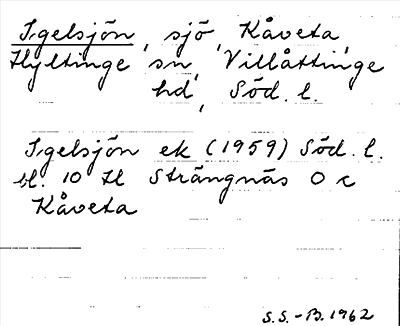 Igelsjön, sjö, Kåveta,
Hyltinge sn, Villåttinge
hd, Söd. l.
Igelsjön ek (1959) Söd. l.
bl. 10 H Strängnäs O c
Kåveta
S.S.-B. 1962